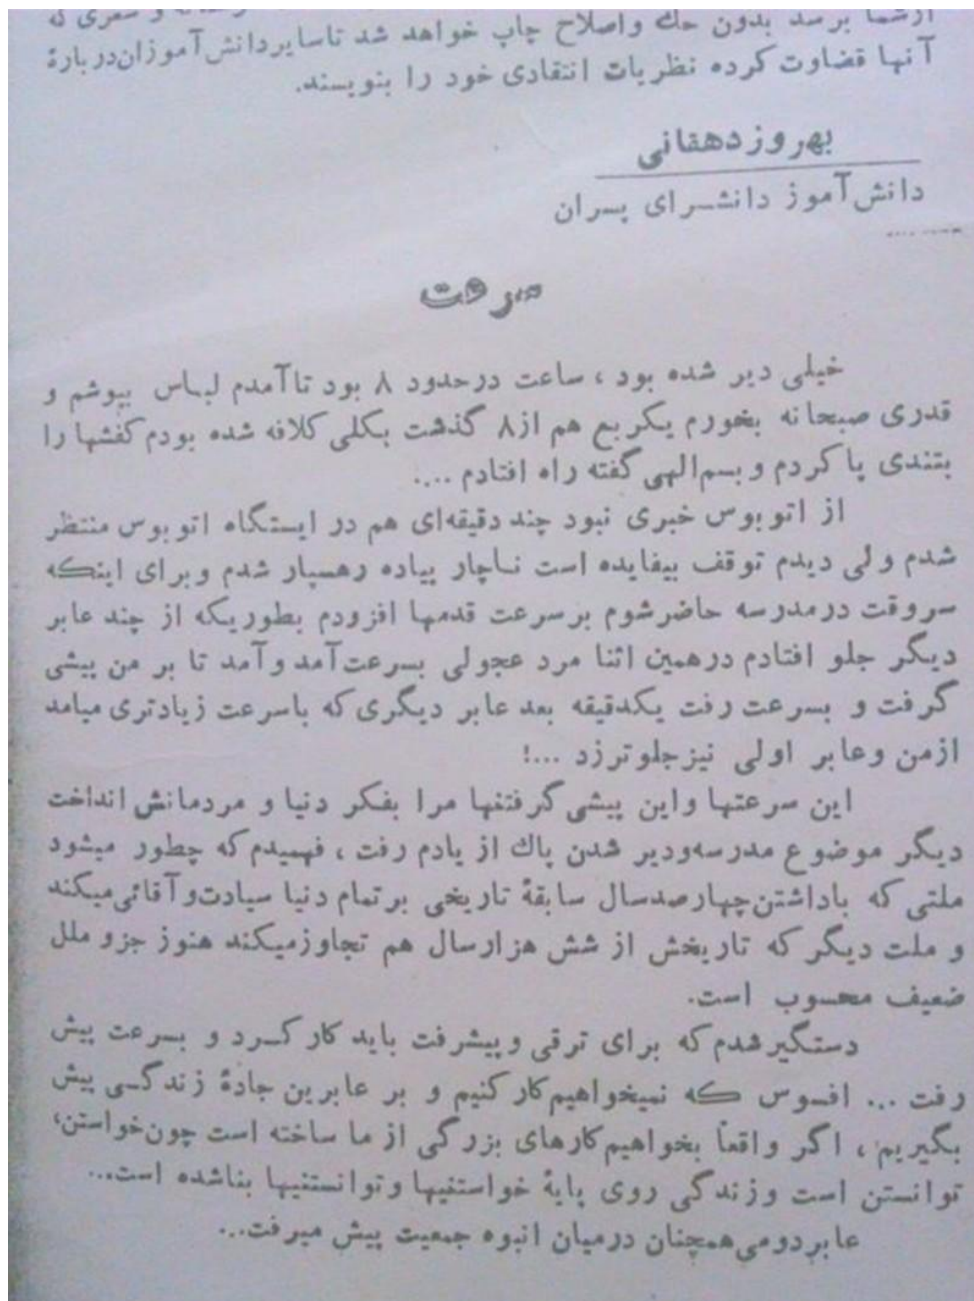 ازشما برسد بدون حك واصلاح چاپ خواهد شد تاسایردانش‌آموزان‌دربارهٔ
آنها قضاوت کرده نظریات انتقادی خود را بنویسند.
بهروزدهقانی
دانش‌آموز دانشسرای پسران
سرعت
خیلی دیر شده بود ، ساعت درحدود ۸ بود تاآمدم لباس بپوشم و
قدری صبحانه بخورم یکربع هم از۸ گذشت بکلی کلافه شده بودم کفشها را
بتندی پا کردم و بسم‌الهی گفته راه افتادم ....
از اتوبوس خبری نبود چند دقیقه‌ای هم در ایستگاه اتوبوس منتظر
شدم ولی دیدم توقف بیفایده است ناچار پیاده رهسپار شدم وبرای اینکه
سروقت درمدرسه حاضرشوم برسرعت قدمها افزودم بطوریکه از چند عابر
دیگر جلو افتادم درهمین اثنا مرد عجولی بسرعت‌آمد وآمد تا بر من پیشی
گرفت و بسرعت رفت یکدقیقه بعد عابر دیگری که باسرعت زیادتری میامد
ازمن وعابر اولی نیزجلوترزد ...!
این سرعتها واین پیشی‌گرفتنها مرا بفکر دنیا و مردمانش انداخت
دیگر موضوع مدرسه‌ودیر شدن پاك از یادم رفت ، فهمیدم که چطور میشود
ملتی که باداشتن‌چهارصدسال سابقهٔ تاریخی برتمام دنیا سیادت‌وآقائی‌میکند
و ملت دیگر که تاریخش از شش هزارسال هم تجاوزمیکند هنوز جزو ملل
ضعیف محسوب است.
دستگیرشدم که برای ترقی وپیشرفت باید کار کرد و بسرعت پیش
رفت ... افسوس که نمیخواهیم‌کار کنیم و بر عابرین جادهٔ زندگی پیش
بگیریم ، اگر واقعاً بخواهیم‌کارهای بزرگی از ما ساخته است چون‌خواستن،
توانستن است وزندگی روی پایهٔ خواستنیها وتوانستنیها بناشده است...
عابردومی‌همچنان درمیان انبوه جمعیت پیش میرفت...